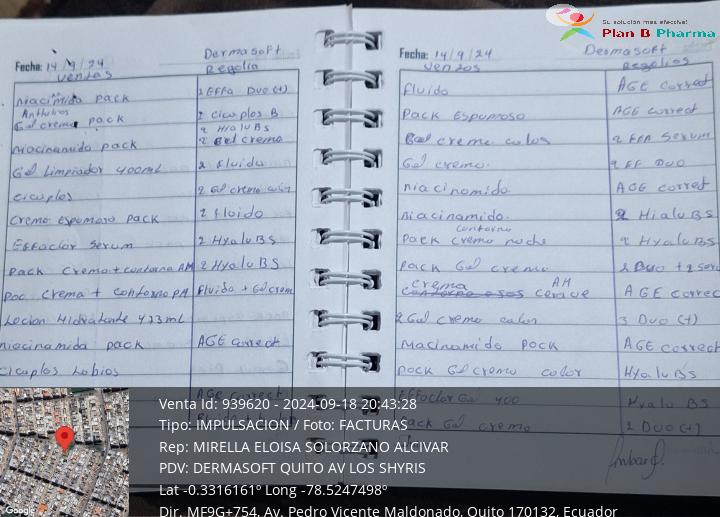 Su solución mas efectiva!
Plan B Pharma
Fecha: 14/9/24 Dermasoft
Ventas Regalia
Niacimida pack 1 EFFA Duo (+)
Anthelios
Gel crema pack 2 cicaplos B
2 HialuBs
Niacinamida pack 2 Gel crema
Gel Limpiador 400ml 2 Fluido
Cicaplos 2 Gel crema color
Crema espumosa pack 2 Fluido
Effaclor serum 2 HyaluBS
Pack Crema + contorno AM 2 HyaluBS
Crema + contorno Fluido + Gel crem
Locion Hidratante 473ml
Niacinamida pack AGE correct
Cicaplos Labios
AGE correct
Fecha: 14/9/24 Dermasoft
Ventas Regalios
Fluido AGE correct
Pack Espumoso AGE correct
Gel crema color 2 EFA Serum
Gel crema. 2 EF DUO
Niacinamida AGE correct
Niacinamida. 2 HialuBs
contorno
Pack crema noche 2 HyaluBS
Pack Gel crema 2 Duo + 2 seru
crema AM
AGE correc
2 Gel crema color 3 Duo (+)
Niacinamida Pock AGE correct
Pock Gel crema color HyaluBs
Effaclor Gel 400 Hyalu BS
Pack Gel crema 2 Duo (+)
Venta Id: 939620 - 2024-09-18 20:43:28
Tipo: IMPULSACION / Foto: FACTURAS
Rep: MIRELLA ELOISA SOLORZANO ALCIVAR
PDV: DERMASOFT QUITO AV LOS SHYRIS
Lat -0.3316161º Long -78.5247498º
Dir. MF9G+754, Av. Pedro Vicente Maldonado, Quito 170132, Ecuador
Google